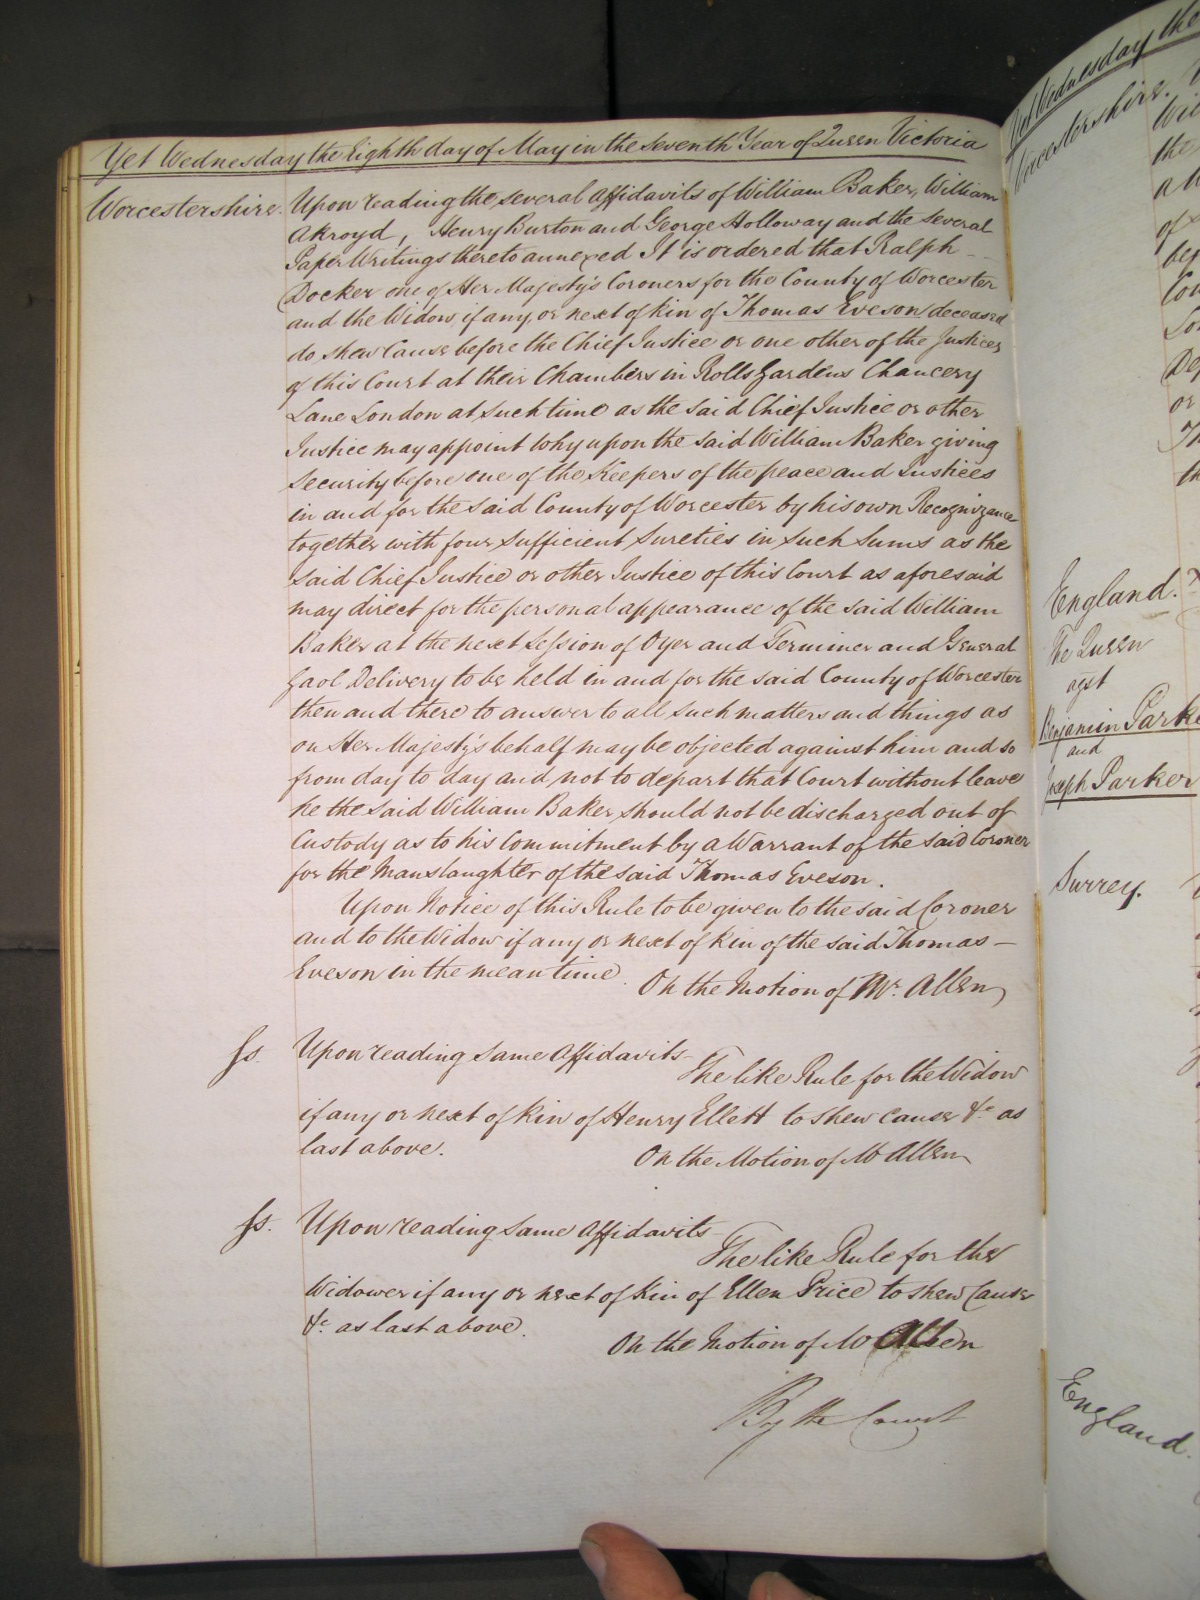 Yet Wednesday the Eighth day of May in the Seventh Year of Queen Victoria
Worcestershire. Upon reading the several Affidavits of William Baker, William
Akroyd, Henry Burton and George Holloway and the several
Paper Writings thereto annexed It is ordered that Ralph
Docker one of Her Majesty's Coroners for the County of Worcester
and the Widow, if any, or next of kin of Thomas Eveson deceased
do shew Cause before the Chief Justice or one other of the Justices
of this Court at their Chambers in Rolls Gardens Chancery
Lane London at such time as the said Chief Justice or other
Justice may appoint Why upon the said William Baker giving
Security before one of the Keepers of the peace and Justices
in and for the said County of Worcester by his own Recognizance
together with four sufficient Sureties in such Sums as the
said Chief Justice or other Justice of this Court as aforesaid
may direct for the personal appearance of the said William
Baker at the next Session of Oyer and Terminer and General
Gaol Delivery to be held in and for the said County of Worcester
then and there to answer to all such matters and things as
on Her Majesty's behalf may be objected against him and so
from day to day and not to depart that Court without leave
he the said William Baker should not be discharged out of
Custody as to his Commitment by a Warrant of the said Coroner
for the Manslaughter of the said Thomas Eveson.
Upon Notice of this Rule to be given to the said Coroner
and to the Widow if any or next of kin of the said Thomas –
Eveson in the mean time. On the Motion of Mr. Allen
Ss. Upon reading same Affidavits
The like Rule for the Widow
if any or next of kin of Henry Ellett to shew cause &c as
last above. On the Motion of Mr Allen
Ss. Upon reading same Affidavits
The like Rule for the
Widower if any or next of kin of Ellen Price to shew Cause
&c as last above. On the Motion of Mr Allen
By the Court
Yet Wednesday the
Worcestershire.
England.
The Queen
agst
Benjamin Parker
and
Joseph Parker
Surrey.
England.